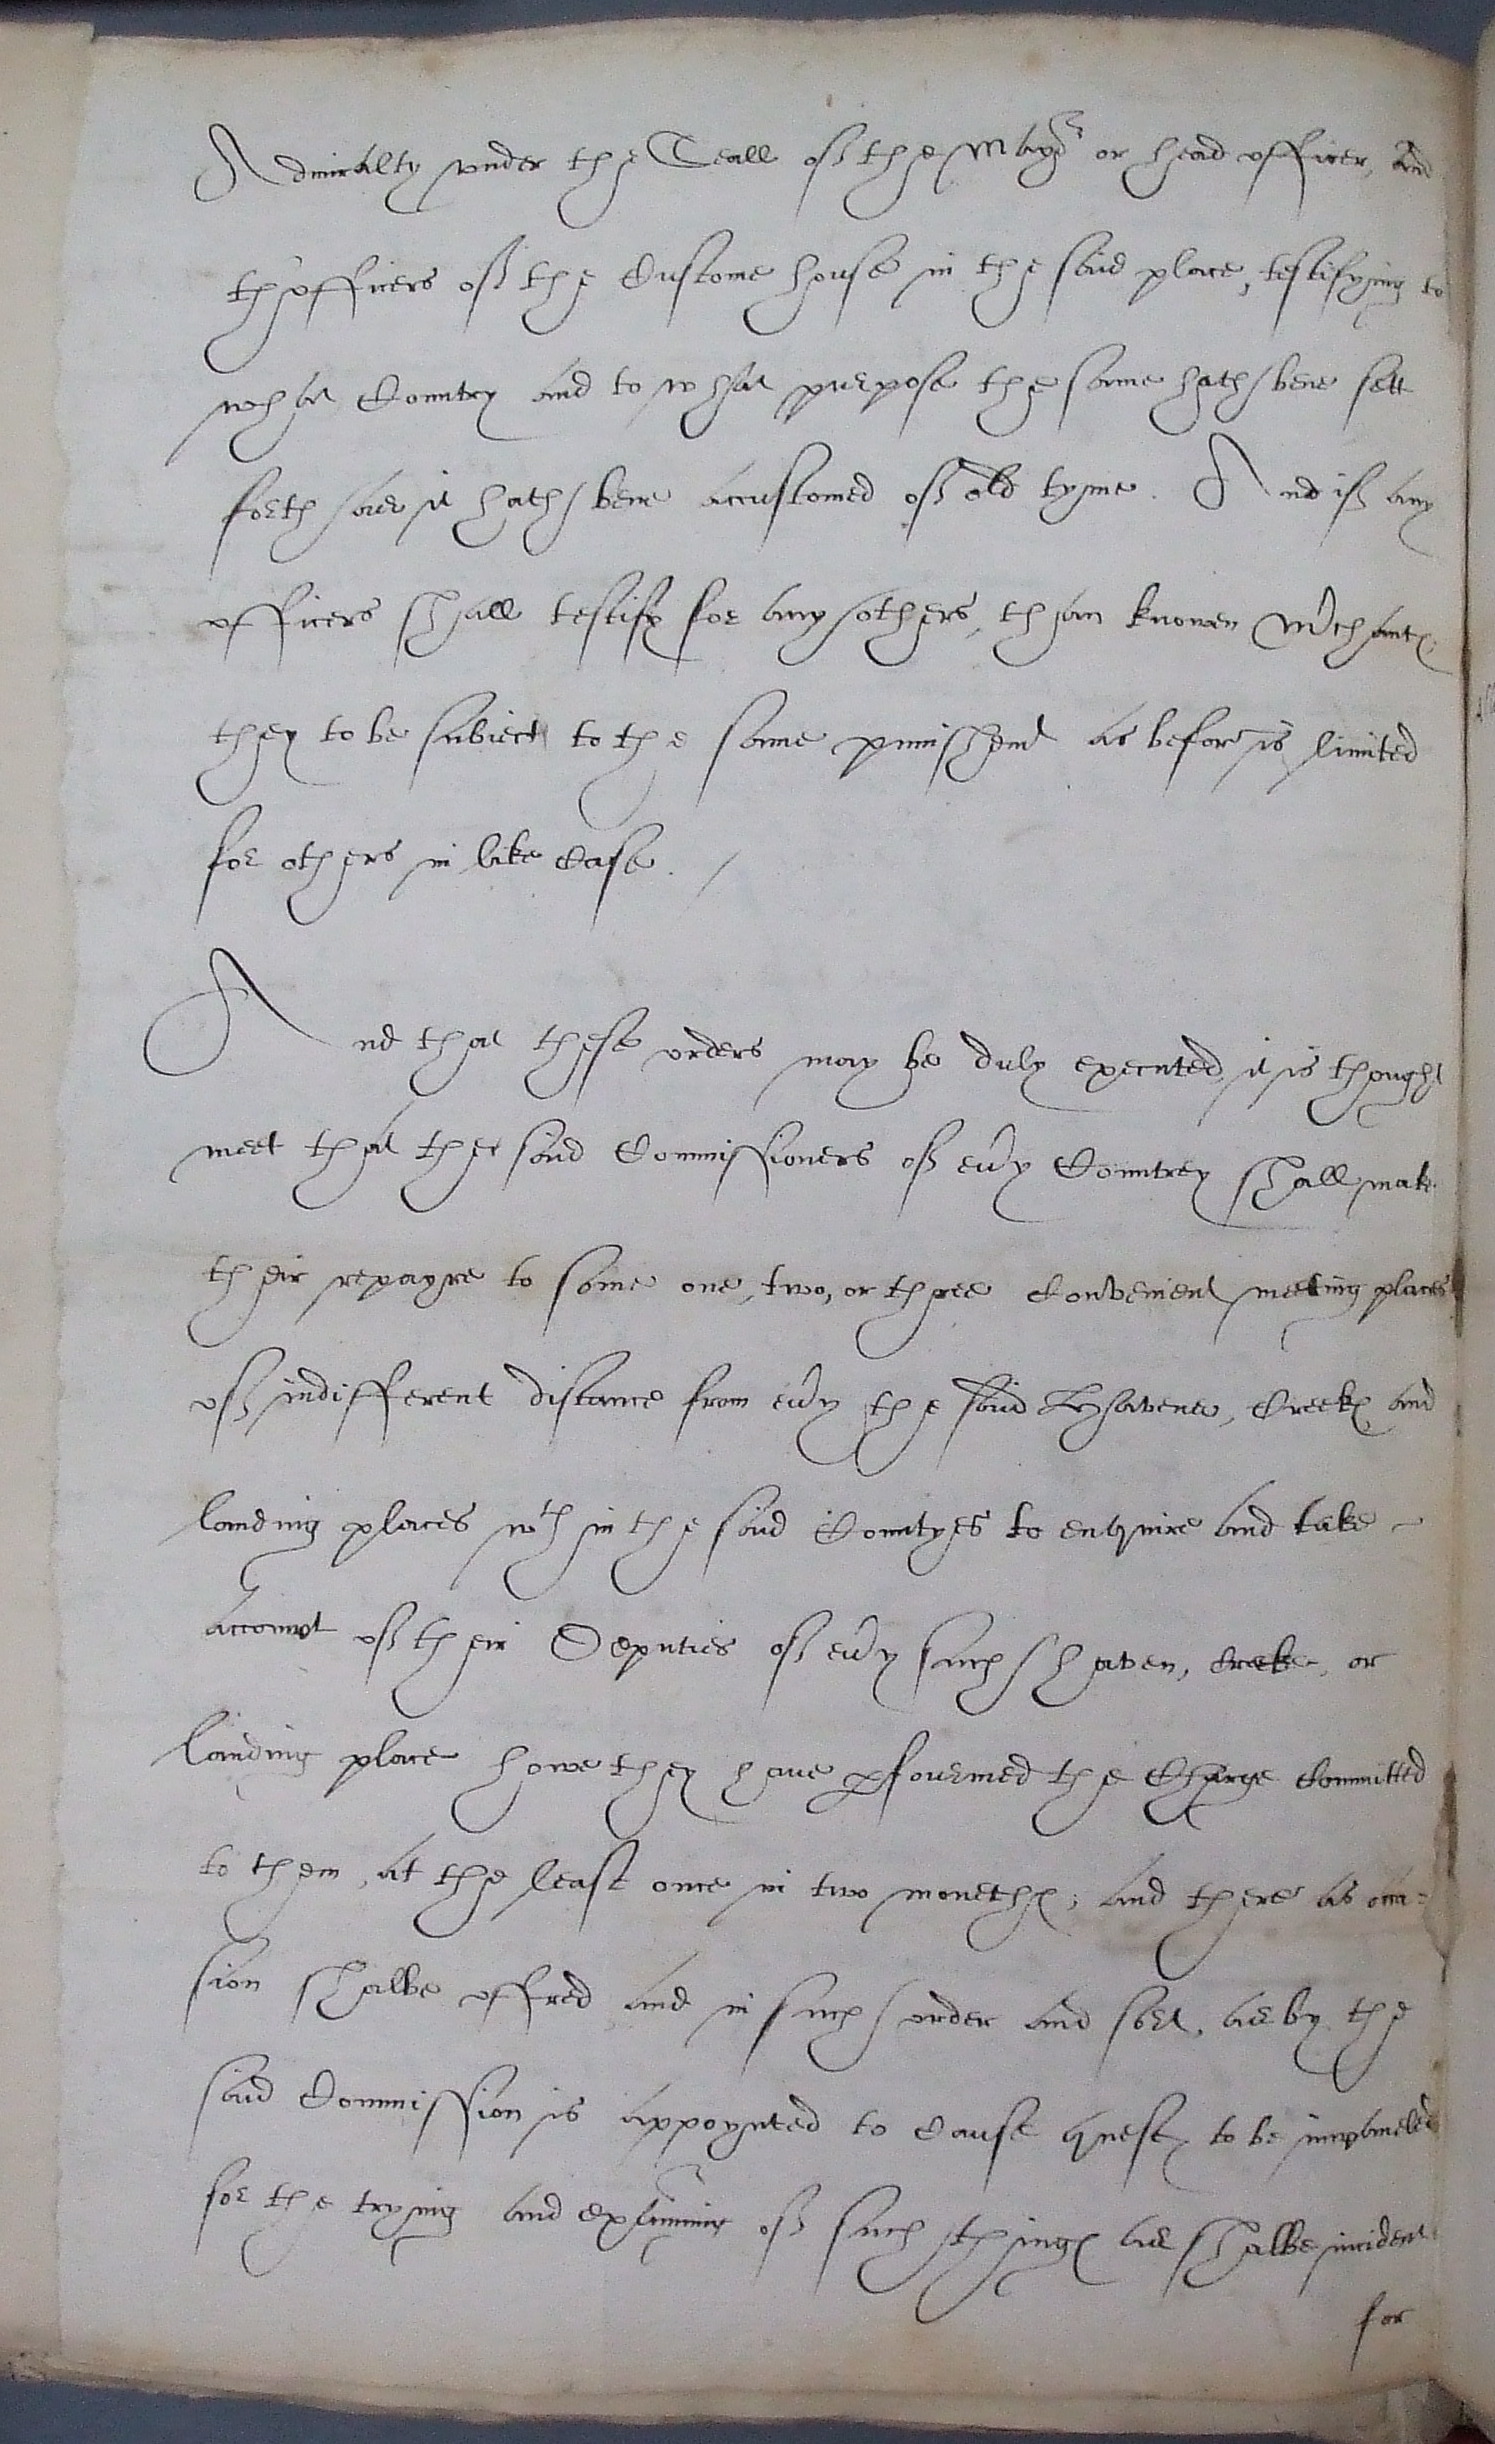 Admiralty vnder the Seall of the Mayor or head officer, and
thofficers of the Custome house in the said place, testifying to
what Countrey and to what purpose the same hath bene sett
forth as it hath bene accustomed of old tyme. And if any
officers shall testify for any others, than knowen Mrchants,
they to be subiect to the same punishmt as before is limited
for others in like Case. /
And that these orders may be duly executed, it is thought
meet that the said Commissioners of eury Countrey shall make
their repayre to some one, two, or three Convenient meeting places
of indifferent distance from eury the said Havene, Creeks and
landing places wth in the said Countyes to enquire and take
accompt of their Deputies of eury such haven, creeke, or
landing place howe they haue pfourmed the Charge Committed
to them, at the least once in two moneths; and there as occa=
sion shalbe offred and in such order and sort, as by the
said Commission is appoynted to Cause quests to be impaneled
for the trying and examining of such things as shalbe incident
for